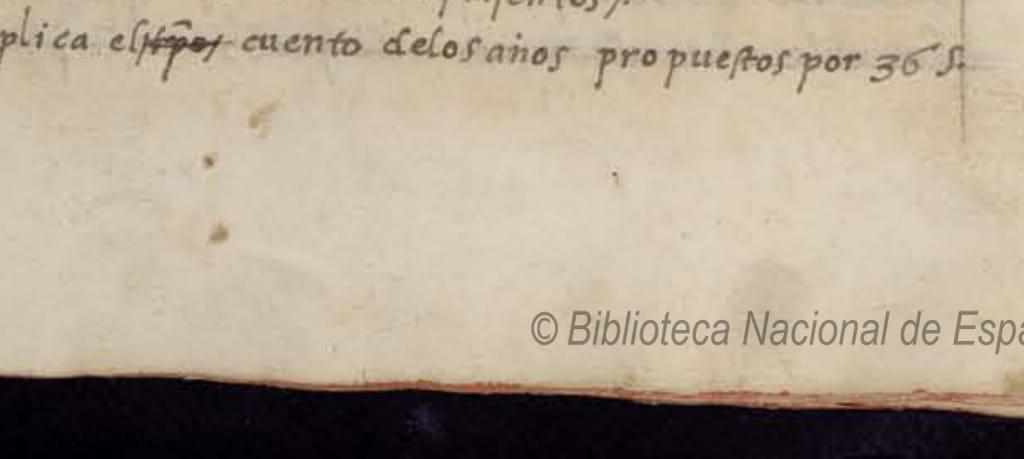 plica el cuento delos años propuestos por 365.
© Biblioteca Nacional de Espa